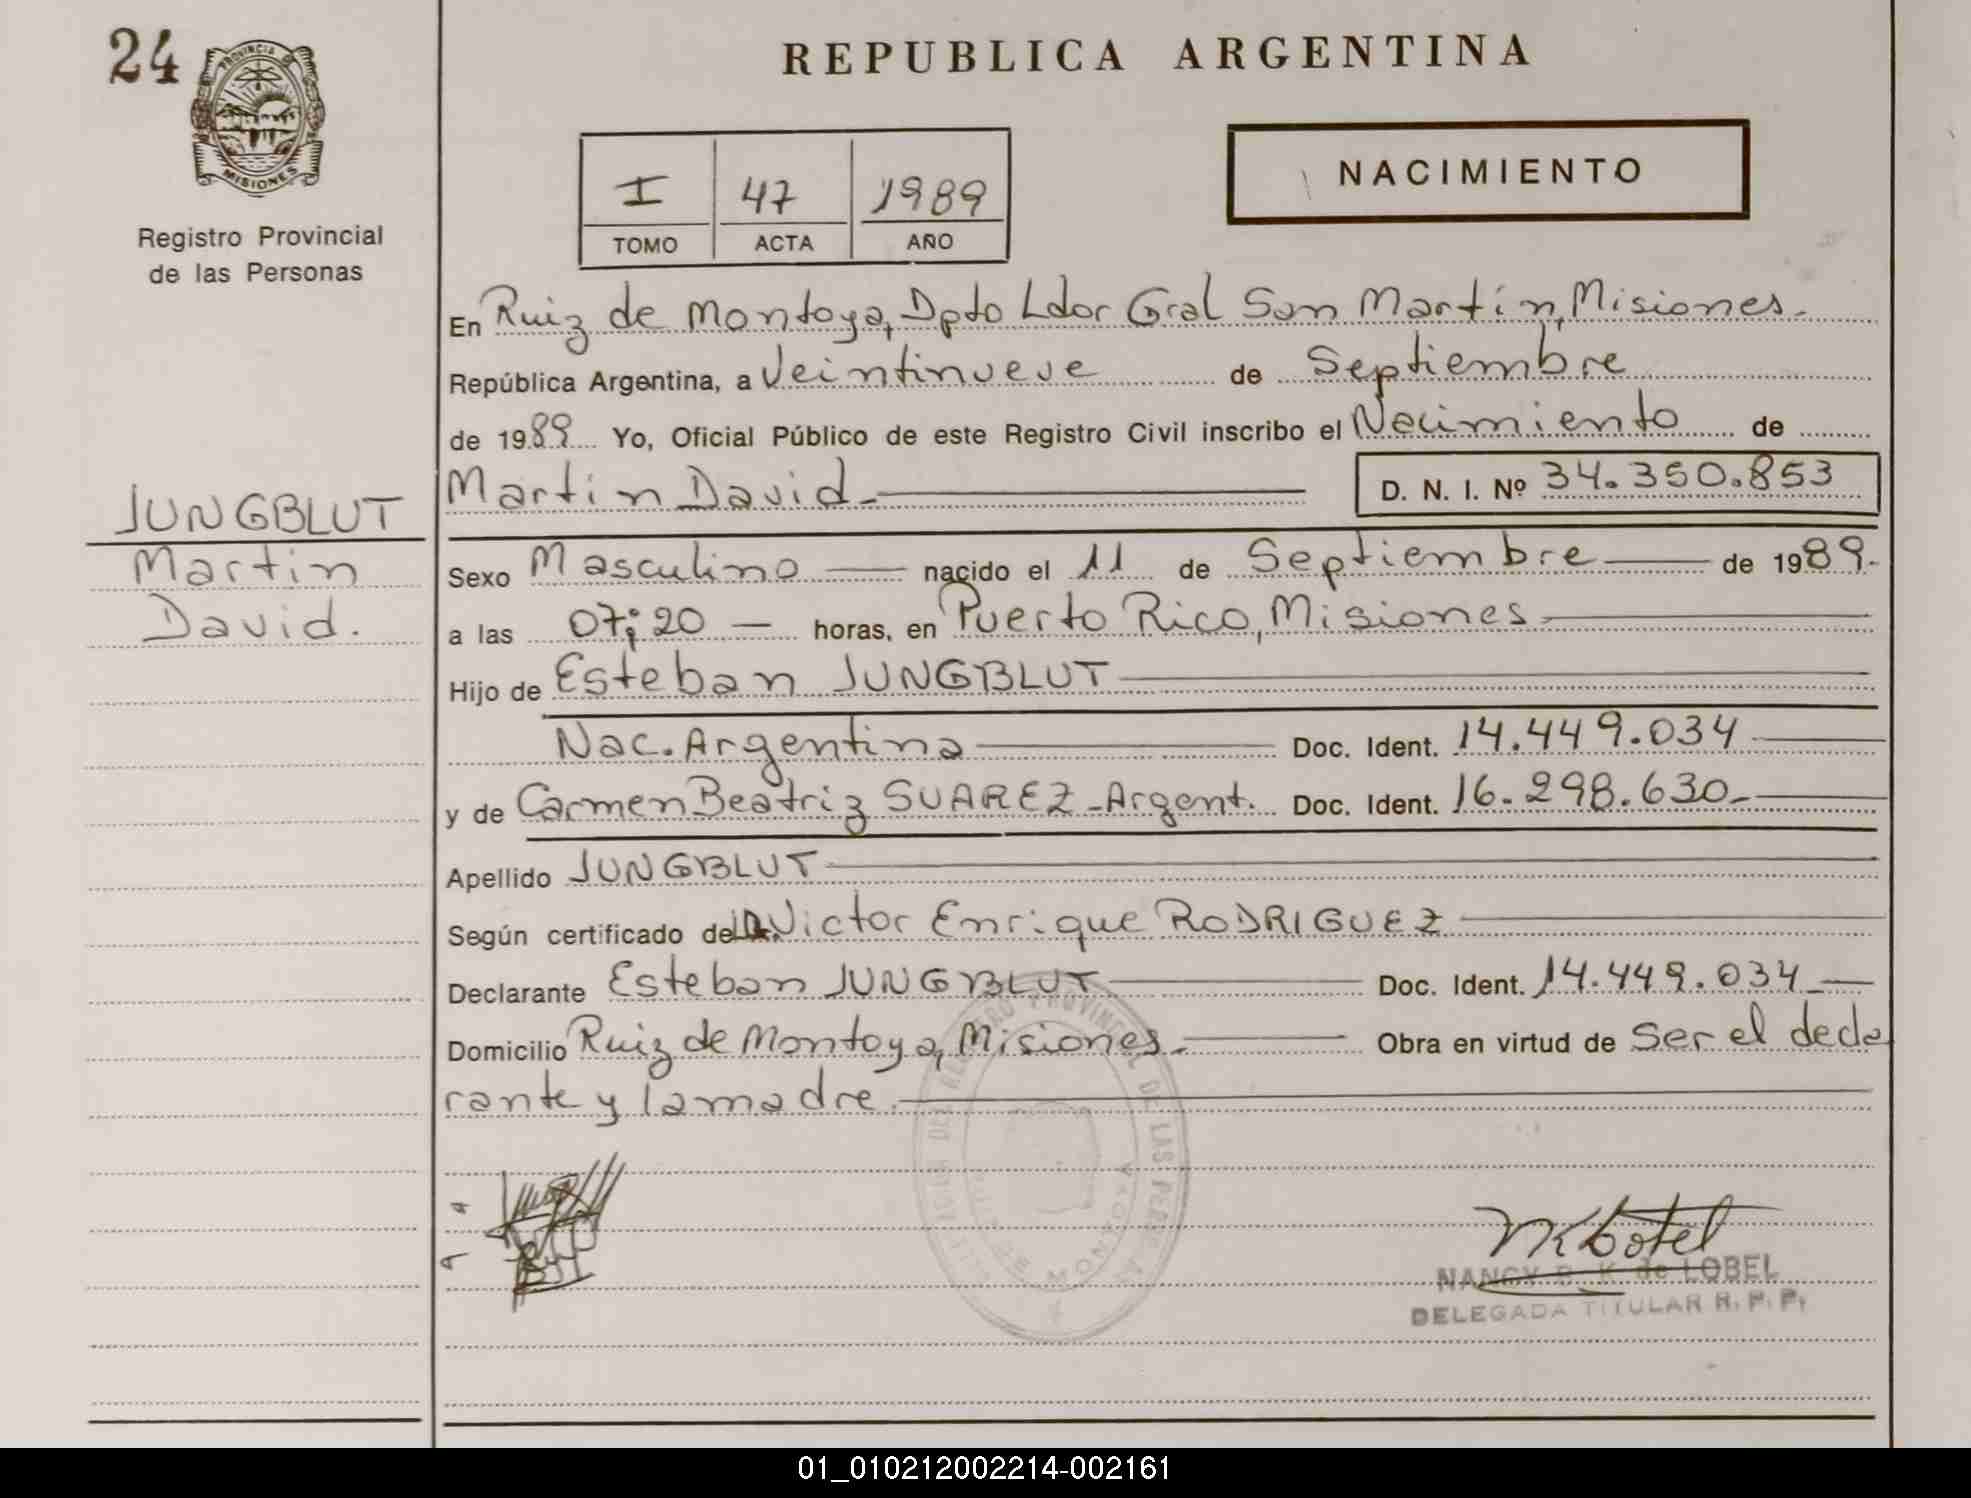 24
PROVINCIA
MISIONES
Registro Provincial
de las Personas
JUNGBLUT
Martin
David.
REPUBLICA ARGENTINA
I 47 1989
TOMO ACTA AÑO
NACIMIENTO
En Ruiz de Montoya, Dpto Ldor Gral San Martín, Misiones.
República Argentina, a Veintinueve de Septiembre
de 1989 Yo, Oficial Público de este Registro Civil inscribo el Nacimiento de
Martin David.
D. N. I. Nº 34.350.853
Sexo Masculino nacido el 11 de Septiembre de 1989.
a las 07;20 horas, en Puerto Rico, Misiones
Hijo de Esteban JUNGBLUT
Nac. Argentina Doc. Ident. 14.449.034
y de Carmen Beatriz SUAREZ - Argent. Doc. Ident. 16.298.630
Apellido JUNGBLUT
Según certificado del Dr. Victor Enrique RODRIGUEZ
Declarante Esteban JUNGBLUT Doc. Ident. 14.449.034
Domicilio Ruiz de Montoya, Misiones. Obra en virtud de Ser el decla
rante y la madre.
NANCY B. K. de LOBEL
DELEGADA TITULAR R. P. P.
01_010212002214-002161